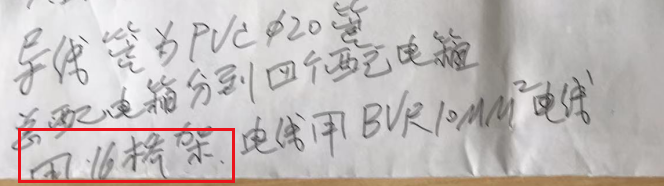 导线管为PVC φ20管
总配电箱分到四个配电箱
用.16桥架.电线用BVR10MM²电线